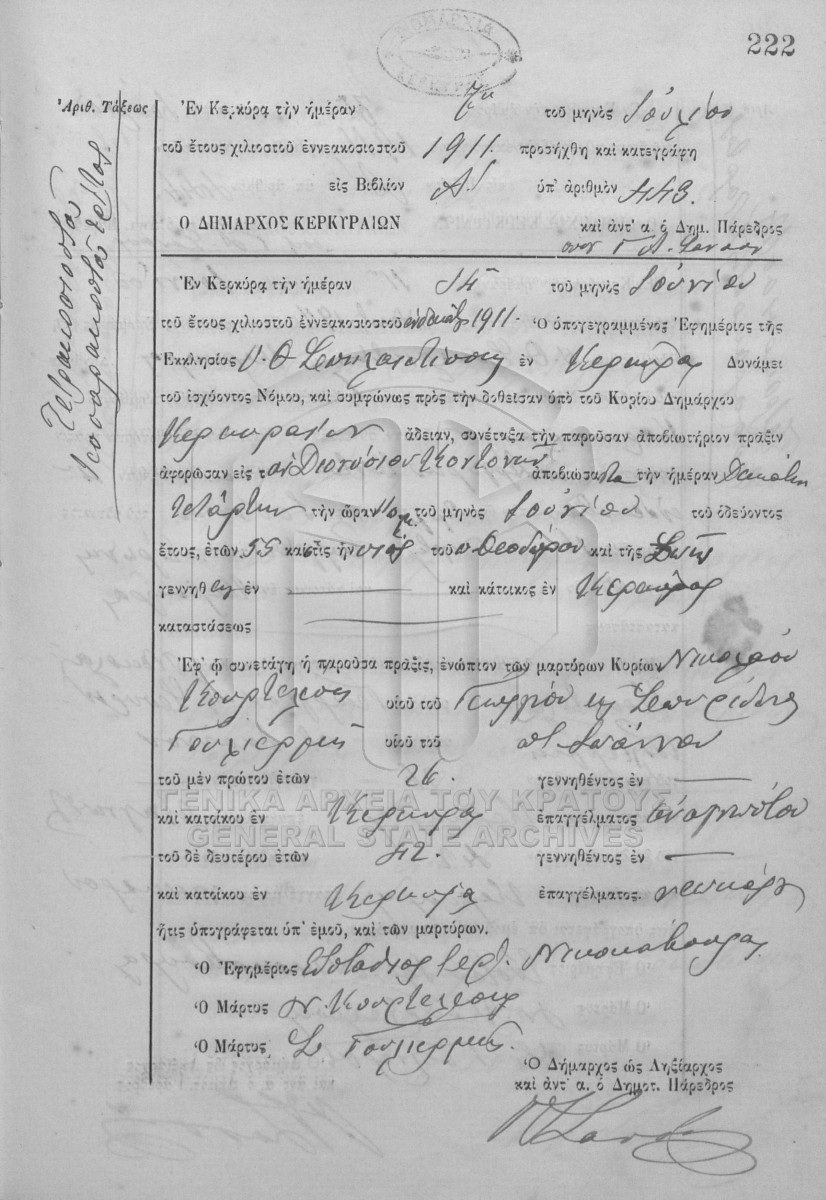 222
Ἀριθ. Τάξεως
Τετρακοσιοστὸν
τεσσαρακοστὸν τρίτον.
Ἐν Κερκύρᾳ τὴν ἡμέραν 7ην τοῦ μηνὸς Ἰουλίου
τοῦ ἔτους χιλιοστοῦ ἐννεακοσιοστοῦ 1911 προσήχθη καὶ κατεγράφη
εἰς Βιβλίον Α! ὑπ' ἀριθμὸν 443.
Ο ΔΗΜΑΡΧΟΣ ΚΕΡΚΥΡΑΙΩΝ καὶ ἀντ' α. ὁ Δημ. Πάρεδρος
Ἐν Κερκύρᾳ τὴν ἡμέραν 14 τοῦ μηνὸς Ἰουνίου
τοῦ ἔτους χιλιοστοῦ ἐννεακοσιοστοῦ ἑνδεκάτου 1911. Ὁ ὑπογεγραμμένος Ἐφημέριος τῆς
Ἐκκλησίας Υ. Θ. Σπηλαιωτίσσης ἐν Κερκύρᾳ Δυνάμει
τοῦ ἰσχύοντος Νόμου, καὶ συμφώνως πρὸς τὴν δοθεῖσαν ὑπὸ τοῦ Κυρίου Δημάρχου
Κερκυραίων ἄδειαν, συνέταξα τὴν παροῦσαν ἀποβιωτήριον πρᾶξιν
ἀφορῶσαν εἰς τὸν Διονύσιον Κοντονῆν ἀποβιώσαντα τὴν ἡμέραν Δεκάτην
τετάρτην τὴν ὥραν 11 τοῦ μηνὸς Ἰουνίου τοῦ ὁδεύοντος
ἔτους, ἐτῶν 55 καὶ ὅστις ἦν υἱὸς τοῦ Θεοδώρου καὶ τῆς
γεννηθεὶς ἐν καὶ κάτοικος ἐν Κερκύρᾳ
καταστάσεως
Ἐφ' ᾧ συνετάγη ἡ παροῦσα πρᾶξις, ἐνώπιον τῶν μαρτύρων Κυρίων Νικολάου
Κουρτελέση υἱοῦ τοῦ Γεωργίου καὶ Σπυρίδωνος
Γουλιέρμη υἱοῦ τοῦ π. Ἰωάννου
τοῦ μὲν πρώτου ἐτῶν 26. γεννηθέντος ἐν
καὶ κατοίκου ἐν Κερκύρᾳ ἐπαγγέλματος ἀναγνώστου
τοῦ δὲ δευτέρου ἐτῶν 42. γεννηθέντος ἐν
καὶ κατοίκου ἐν Κερκύρᾳ ἐπαγγέλματος. νεωκόρου
ἥτις ὑπογράφεται ὑπ' ἐμοῦ, καὶ τῶν μαρτύρων.
Ὁ Ἐφημέριος Εὐστάθιος Ἱερ. Νικοκάβουρας
Ὁ Μάρτυς Ν. Κουρτελέσης
Ὁ Μάρτυς Σ. Γουλιέρμης.
Ὁ Δήμαρχος ὡς Ληξίαρχος
καὶ ἀντ' α. ὁ Δημοτ. Πάρεδρος
ΓΕΝΙΚΑ ΑΡΧΕΙΑ ΤΟΥ ΚΡΑΤΟΥΣ
GENERAL STATE ARCHIVES